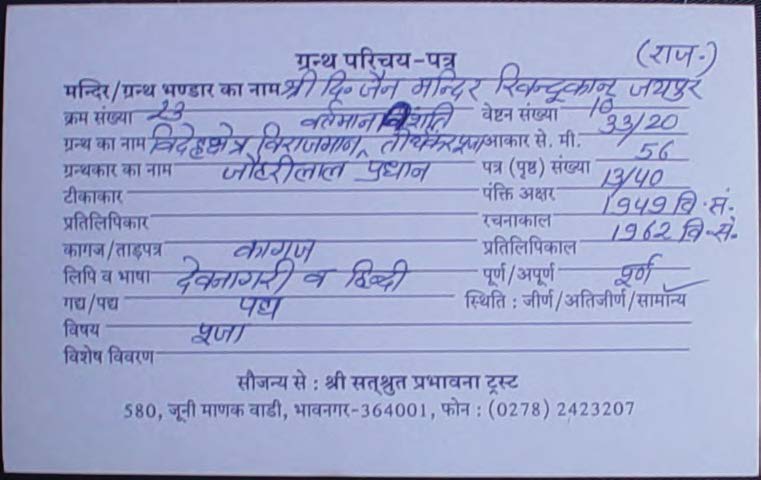 (राज.)
ग्रन्थ परिचय-पत्र
मन्दिर/ग्रन्थ भण्डार का नाम श्री दि. जैन मन्दिर रिवन्दूकान् जयपुर
क्रम संख्या 23 वेष्टन संख्या 10
वर्तमान विंशति
ग्रन्थ का नाम विदेहक्षेत्र विराजमान तीर्थंकर पूजा आकार से. मी. 33/20
ग्रन्थकार का नाम जौहरीलाल प्रधान पत्र (पृष्ठ) संख्या 56
टीकाकार पंक्ति अक्षर 13/40
प्रतिलिपिकार रचनाकाल 1949 वि. सं.
कागज/ताड़पत्र कागज प्रतिलिपिकाल 1962 वि. सं.
लिपि व भाषा देवनागरी व हिन्दी पूर्ण/अपूर्ण पूर्ण
गद्य/पद्य पद्य स्थिति : जीर्ण/अतिजीर्ण/सामान्य
विषय पूजा
विशेष विवरण
सौजन्य से : श्री सत्श्रुत प्रभावना ट्रस्ट
580, जूनी माणक वाडी, भावनगर-364001, फोन : (0278) 2423207